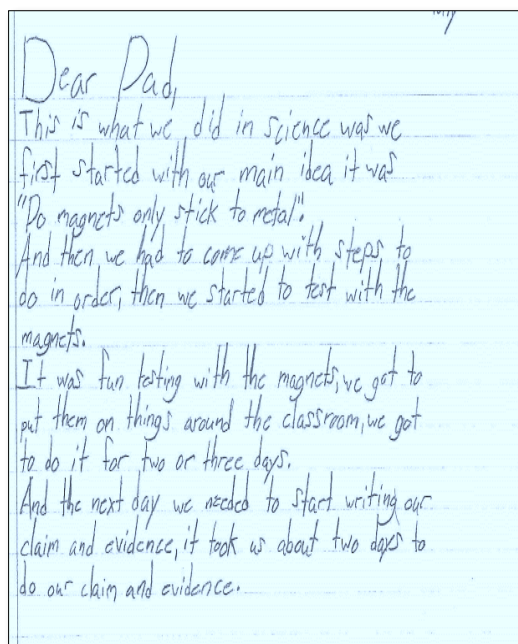 Dear Dad,
This is what we did in science was we
first started with our main idea it was
"Do magnets only stick to metal".
And then we had to come up with steps to
do in order, then we started to test with the
magnets.
It was fun testing with the magnets, we got to
put them on things around the classroom, we got
to do it for two or three days.
And the next day we needed to start writing our
claim and evidence, it took us about two days to
do our claim and evidence.